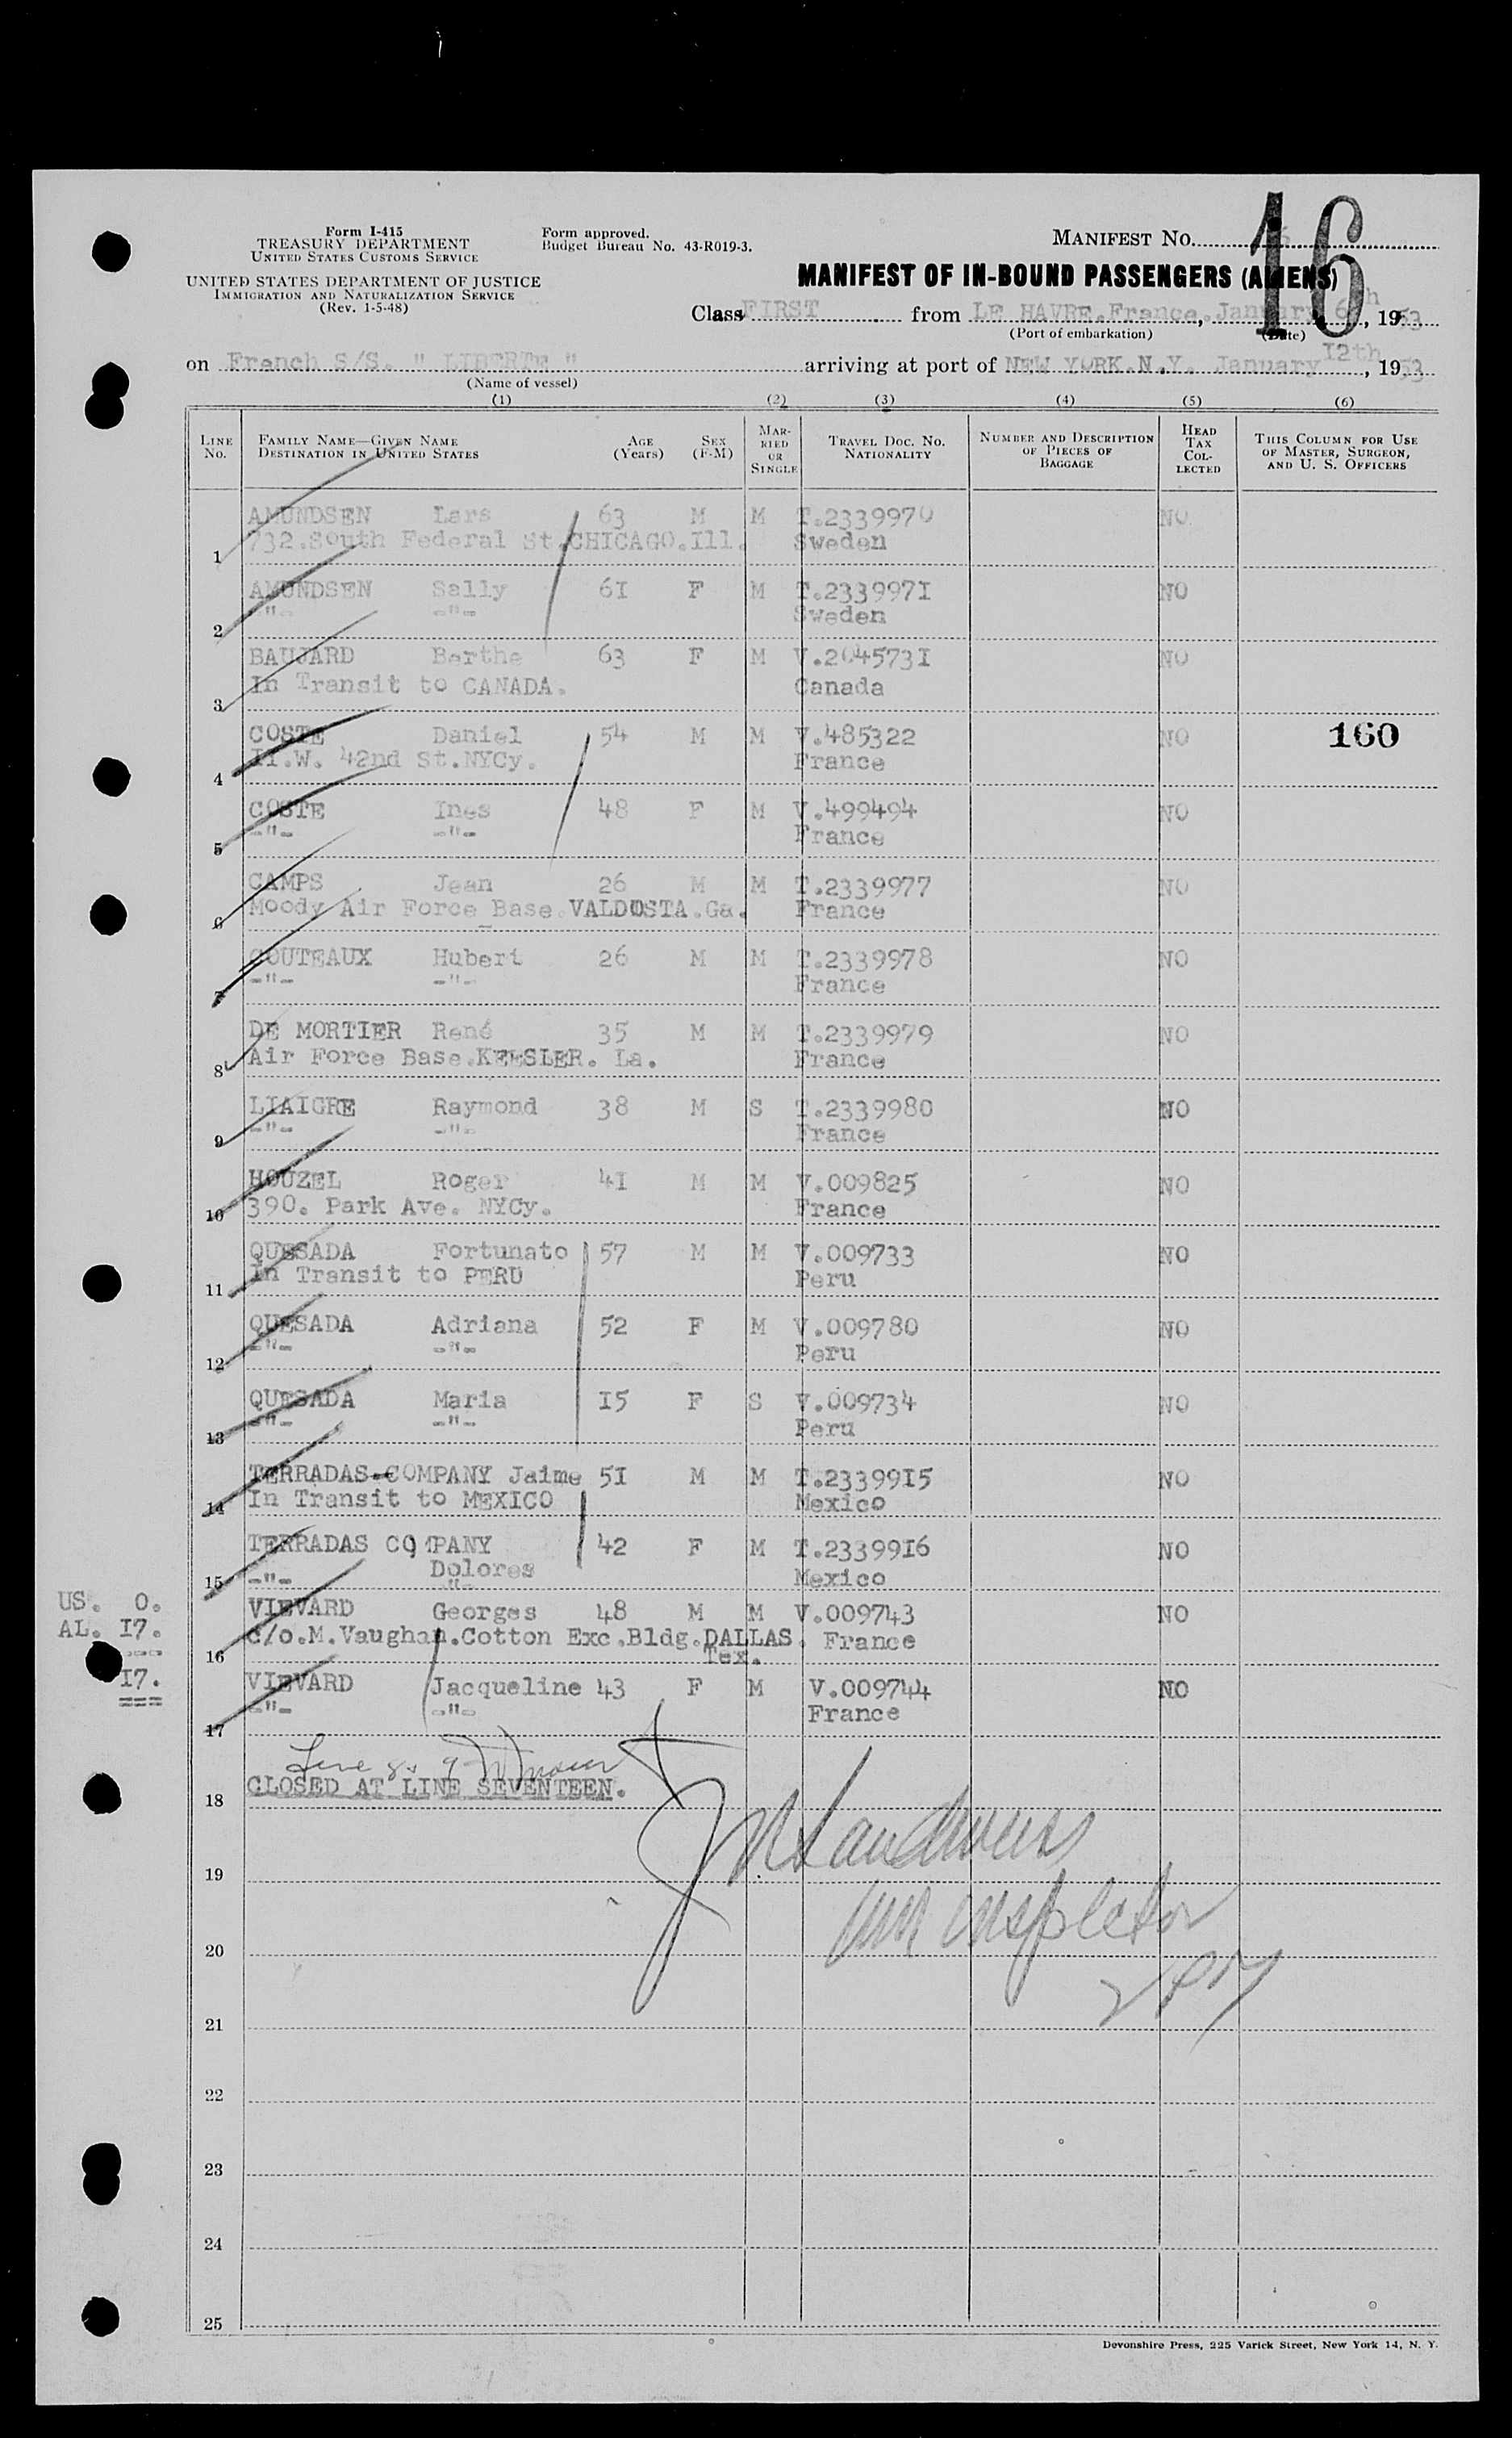 Form I-415
TREASURY DEPARTMENT
UNITED STATES CUSTOMS SERVICE
UNITED STATES DEPARTMENT OF JUSTICE
IMMIGRATION AND NATURALIZATION SERVICE
(Rev. 1-5-48)
Form approved.
Budget Bureau No. 43-R019-3.
MANIFEST NO. 16
MANIFEST OF IN-BOUND PASSENGERS (ALIENS)
Class FIRST from LE HAVRE.France. January 6th, 1953
(Port of embarkation) (Date)
on French S/S. " LIBERTE " arriving at port of NEW YORK.N.Y. January 12th, 1953
(Name of vessel)
(1) (2) (3) (4) (5) (6)
LINE NO. FAMILY NAME—GIVEN NAME DESTINATION IN UNITED STATES AGE (Years) SEX (F-M) MARRIED OR SINGLE TRAVEL DOC. NO. NATIONALITY NUMBER AND DESCRIPTION OF PIECES OF BAGGAGE HEAD TAX COLLECTED THIS COLUMN FOR USE OF MASTER, SURGEON, AND U. S. OFFICERS
AMUNDSEN Lars 63 M M T.2339970 NO
1 732.South Federal St.CHICAGO.Ill. Sweden
AMUNDSEN Sally 61 F M T.2339971 NO
2 -"- -"- Sweden
BAUJARD Berthe 63 F M V.2045731 NO
3 In Transit to CANADA. Canada
COSTE Daniel 54 M M V.485322 NO 160
4 11.W. 42nd St.NYCy. France
COSTE Ines 48 F M V.499494 NO
5 -"- -"- France
CAMPS Jean 26 M M T.2339977 NO
6 Moody Air Force Base.VALDOSTA.Ga. France
COUTEAUX Hubert 26 M M T.2339978 NO
7 -"- -"- France
DE MORTIER René 35 M M T.2339979 NO
8 Air Force Base.KEESLER. La. France
LIAIGRE Raymond 38 M S T.2339980 NO
9 -"- -"- France
HOUZEL Roger 41 M M V.009825 NO
10 390. Park Ave. NYCy. France
QUESADA Fortunato 57 M M V.009733 NO
11 In Transit to PERU Peru
QUESADA Adriana 52 F M V.009780 NO
12 -"- -"- Peru
QUESADA Maria 15 F S V.009734 NO
13 -"- -"- Peru
TERRADAS-COMPANY Jaime 51 M M T.2339915 NO
14 In Transit to MEXICO Mexico
TERRADAS COMPANY 42 F M T.2339916 NO
Dolores
15 -"- -"- Mexico
US. 0.
VIEVARD Georges 48 M M V.009743 NO
AL. 17.
16 c/o.M.Vaughan.Cotton Exc.Bldg.DALLAS. France
Tex.
17.
VIEVARD Jacqueline 43 F M V.009744 NO
17 -"- -"- France
Line 8 & 9
18 CLOSED AT LINE SEVENTEEN.
19
Imm Inspector
20
21
22
23
24
25
Devonshire Press, 225 Varick Street, New York 14, N. Y.